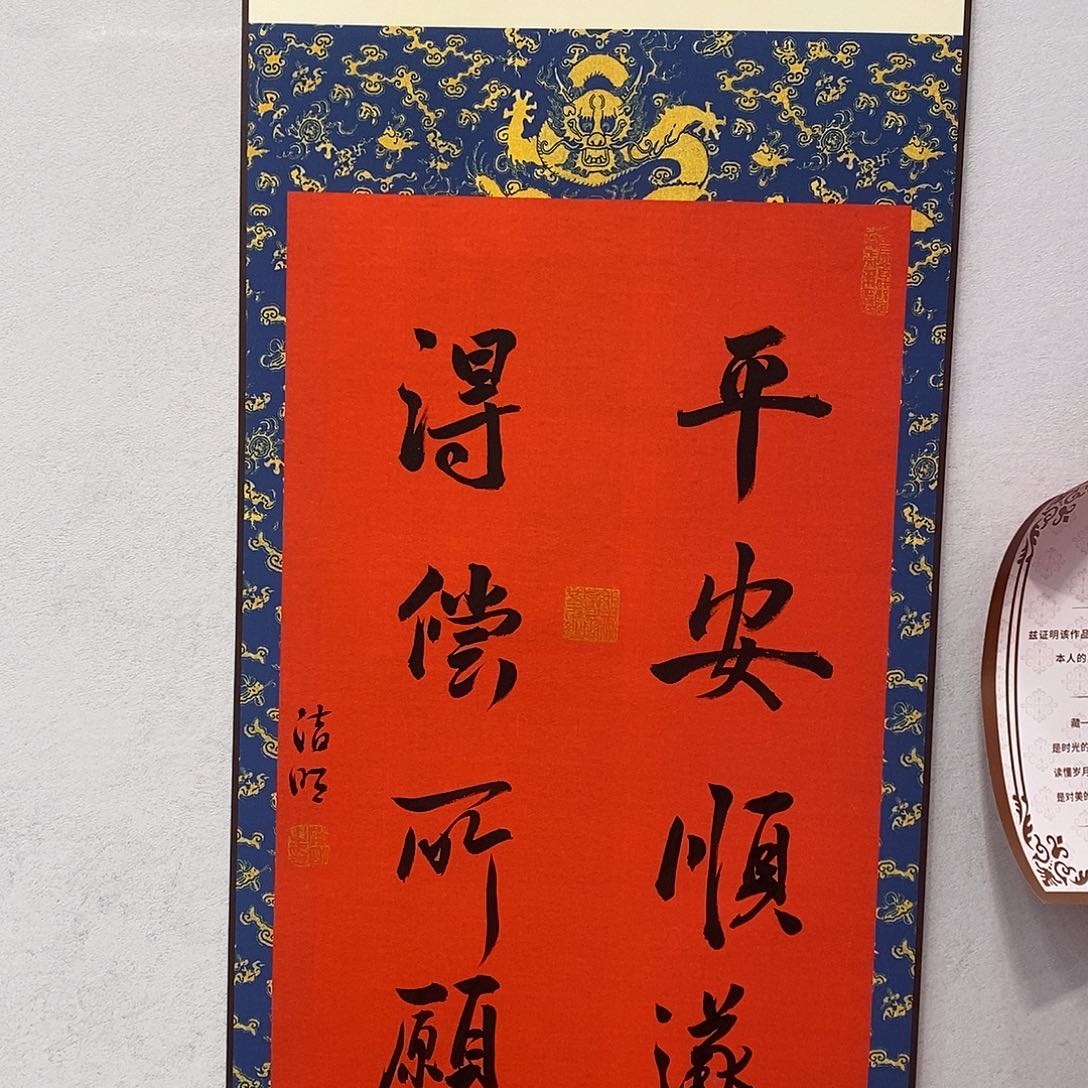 平安順遂
得偿所願
洁明
兹证明该作品
本人的
藏一
是时光的
读懂岁月
是对美的